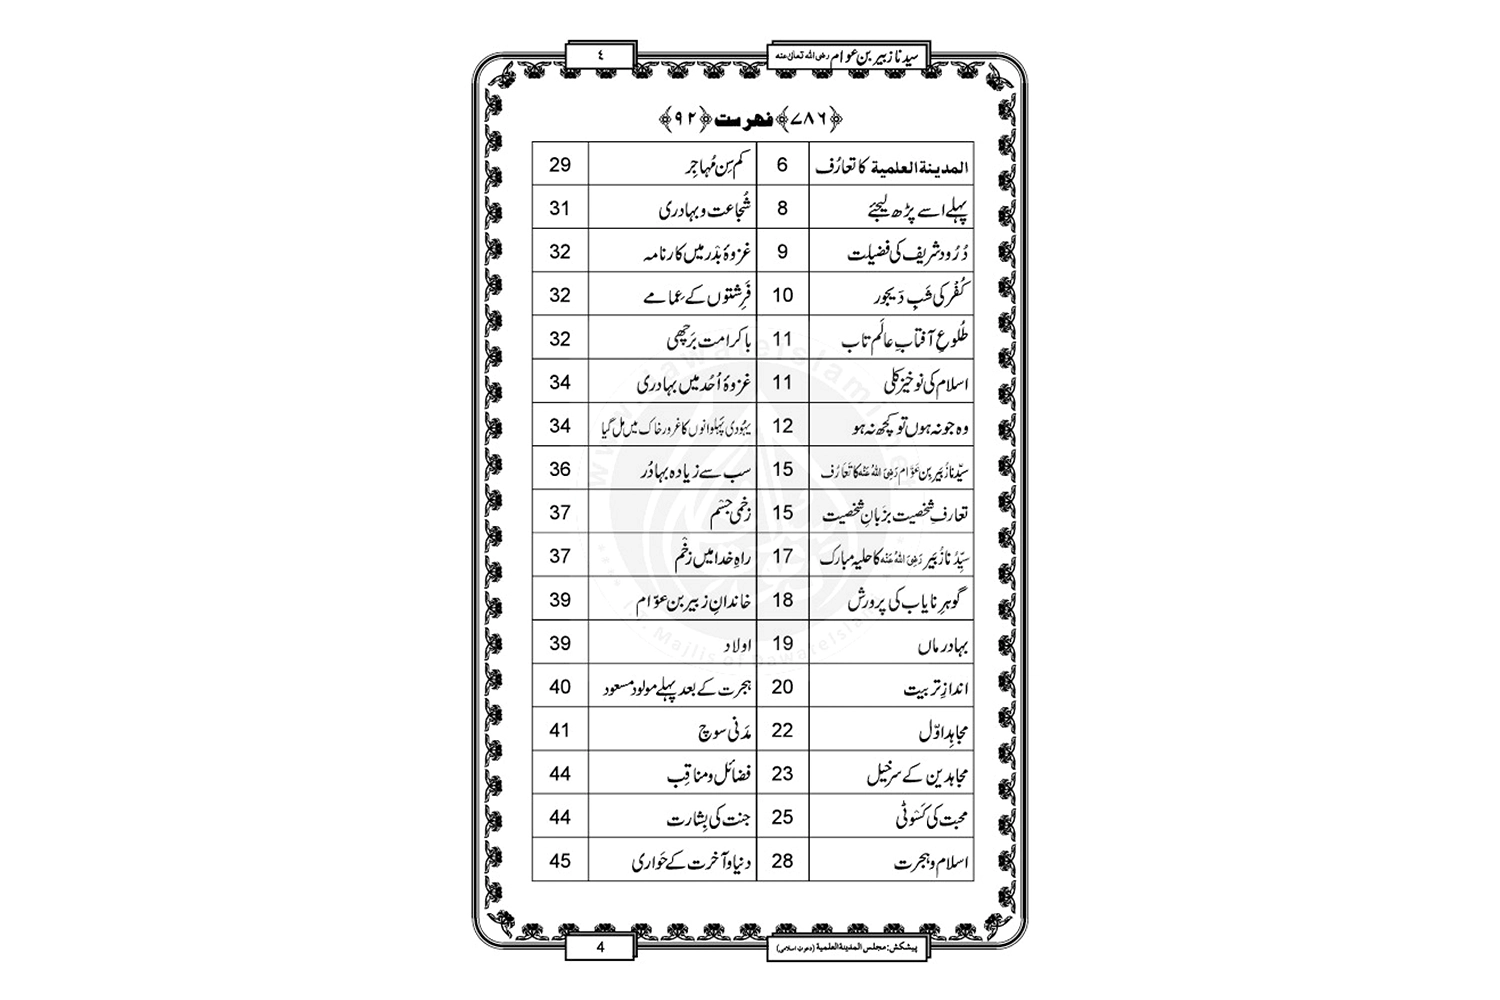 سیدنا زبیر بن عوام رضی الله تعالیٰ عنه
٤
﴿٧٨٦﴾ فهرست ﴿٩٢﴾
المدينة العلمية کا تعارُف 6 کم سِن مُہاجِر 29
پہلے اسے پڑھ لیجئے 8 شُجاعت و بہادری 31
دُرُود شریف کی فضیلت 9 غزوۂ بَدْر میں کارنامہ 32
کُفْر کی شَبِ دَیجور 10 فَرِشتوں کے عِمامے 32
طُلُوعِ آفتابِ عالَم تاب 11 باکرامت بَرچھی 32
اسلام کی نوخیز کلی 11 غزوۂ اُحُد میں بہادری 34
وہ جو نہ ہوں تو کچھ نہ ہو 12 یہُودی پَہلوانوں کا غرور خاک میں مل گیا 34
سیّدنا زُبَیر بِن عَوَّام رَضِیَ اللّٰہُ عَنْہ کا تَعَارُف 15 سب سے زیادہ بہادُر 36
تعارفِ شخصیت بزَبانِ شخصیت 15 زخمی جِسْم 37
سیِّدُنا زُبَیر رَضِیَ اللّٰہُ عَنْہ کا حلیہ مبارک 17 راہِ خدا میں زخْم 37
گوہرِ نایاب کی پرورش 18 خاندانِ زبیر بن عوّام 39
بہادر ماں 19 اولاد 39
اندازِ تربیت 20 ہجرت کے بعد پہلے مولود مسعود 40
مجاہِدِ اوّل 22 مَدَنی سوچ 41
مجاہدین کے سرخیل 23 فضائل و مناقِب 44
محبت کی کَسَوٹی 25 جنت کی بِشارت 44
اسلام و ہجرت 28 دنیا و آخرت کے حَواری 45
پیشکش: مجلس المدينة العلمية (دعوتِ اسلامی)
4